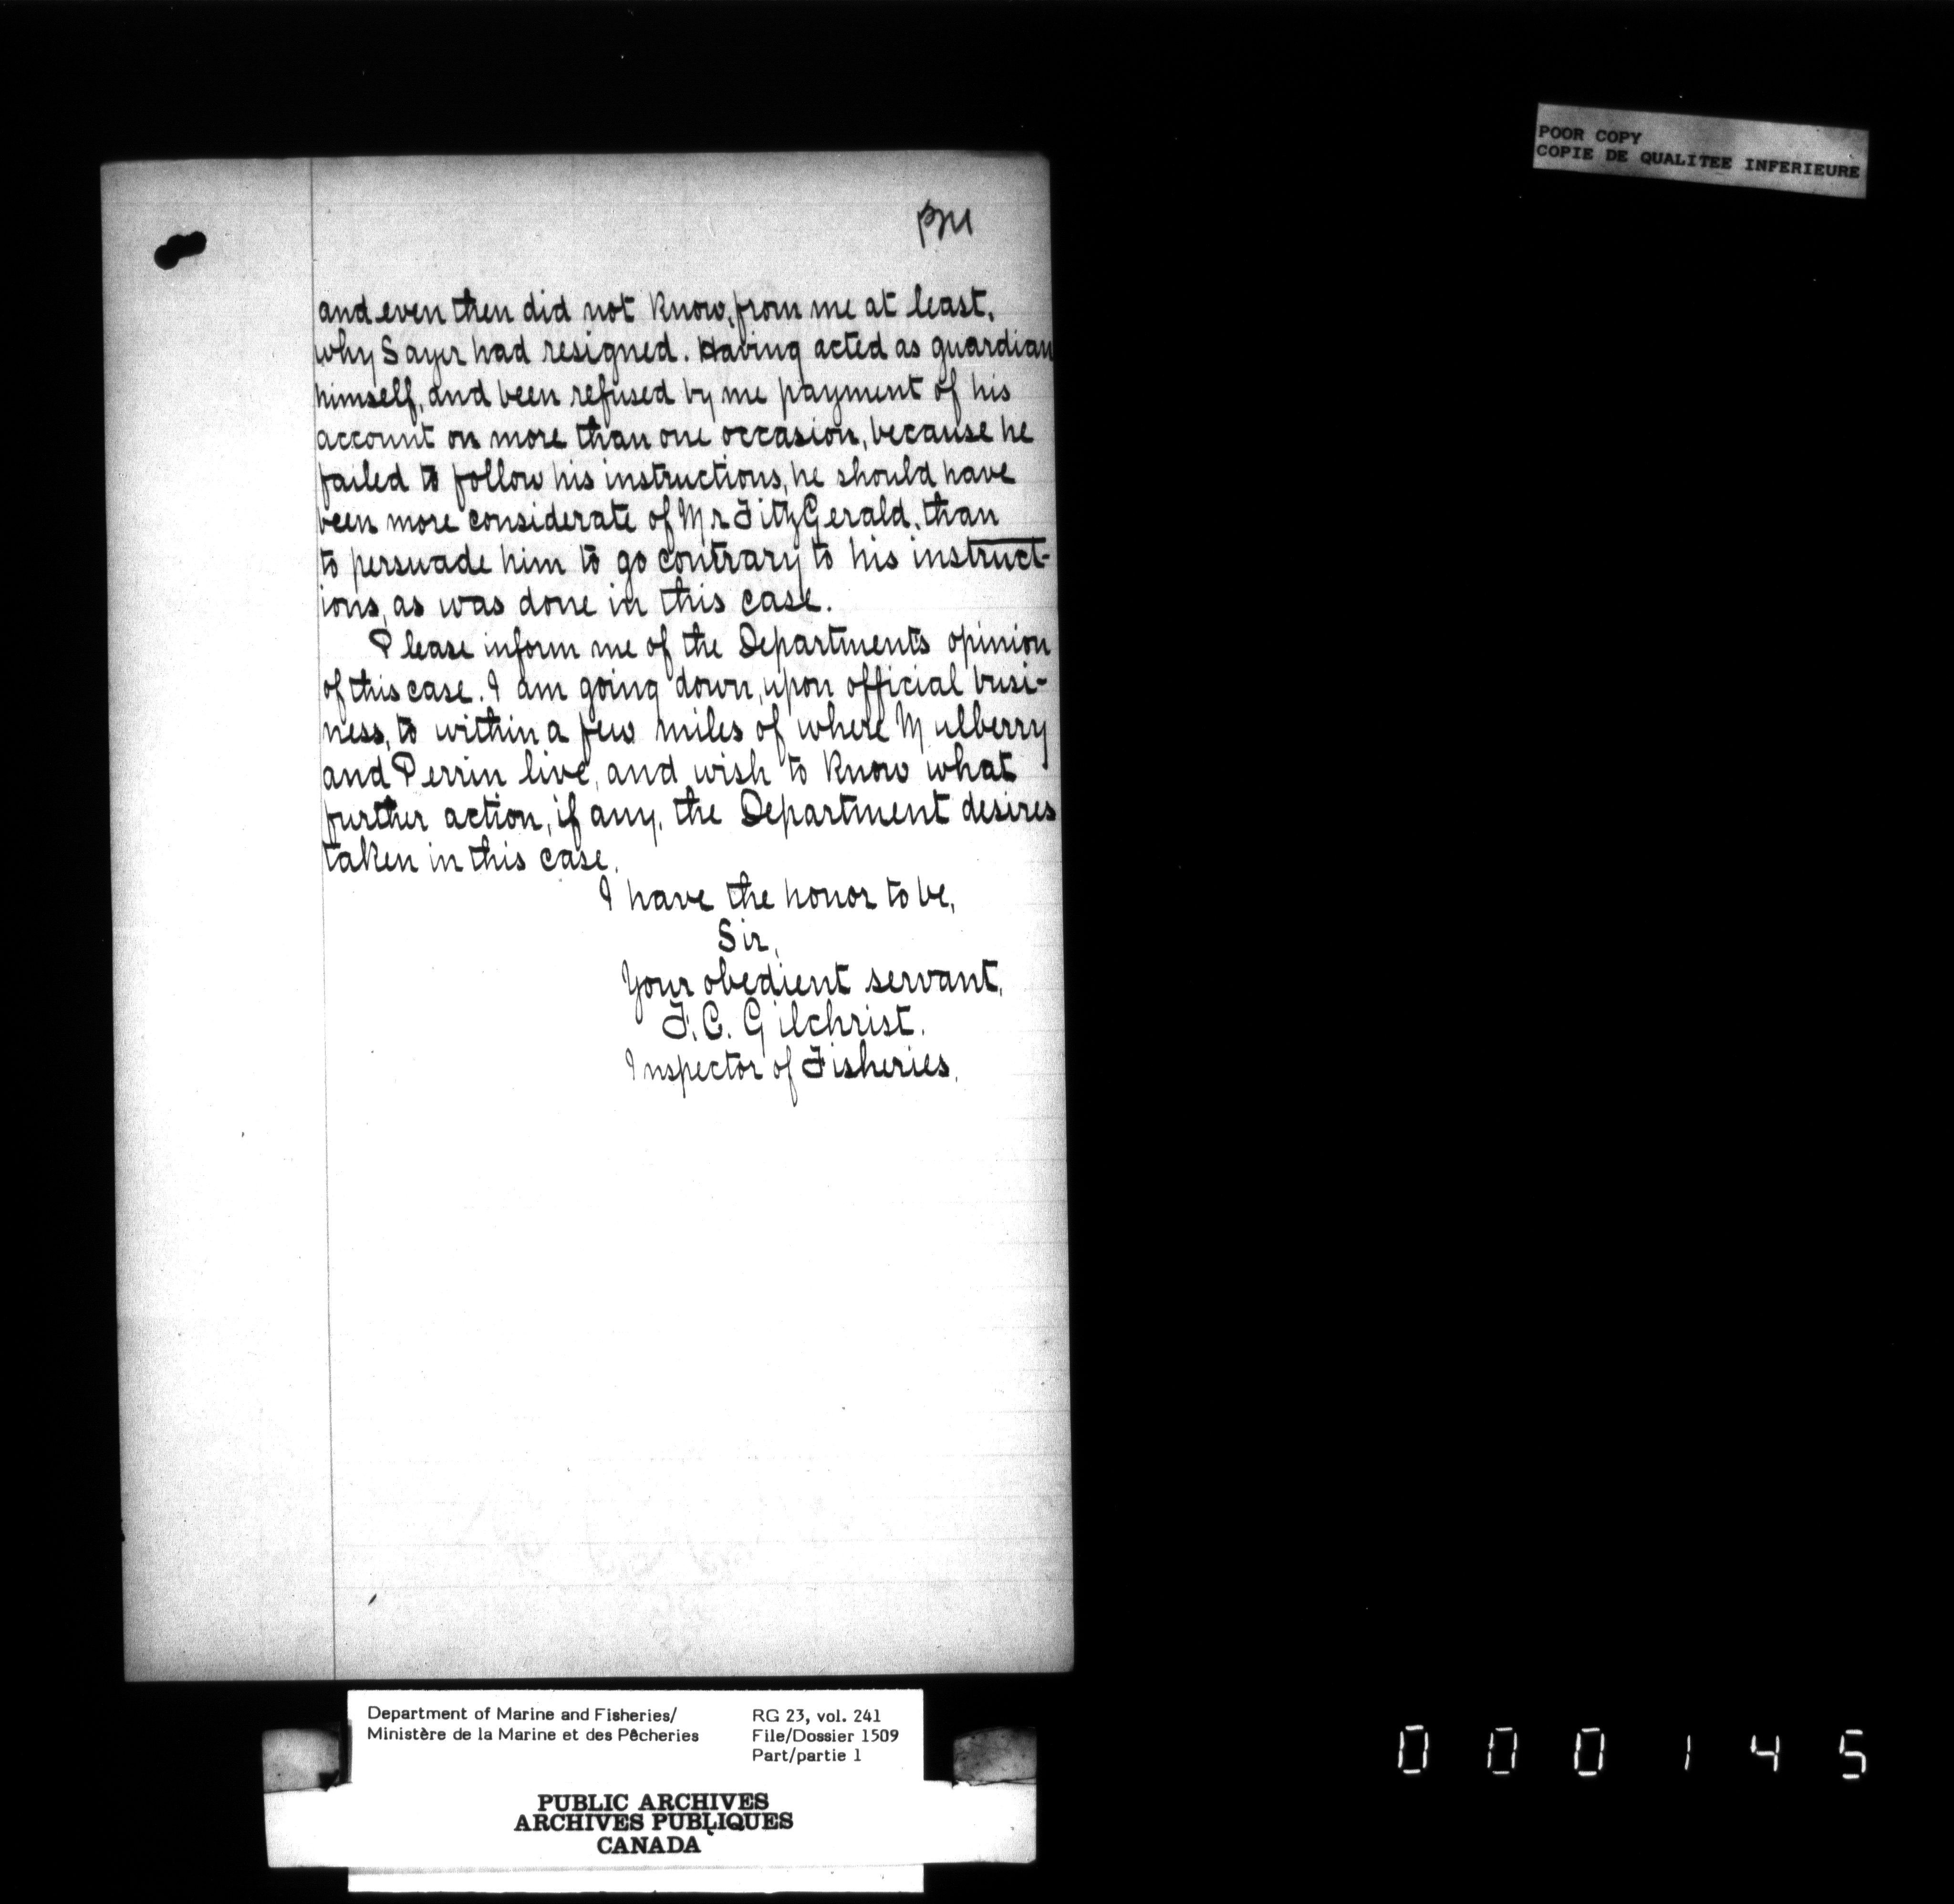 POOR COPY
COPIE DE QUALITEE INFERIEURE
and even then did not know, from me at least,
why Sayer had resigned. Having acted as guardian
himself, and been refused by me payment of his
account on more than one occasion, because he
failed to follow his instructions, he should have
been more considerate of Mr FitzGerald, than
to persuade him to go contrary to his instruct-
ions, as was done in this case.
Please inform me of the Departments opinion
of this case. I am going down, upon official busi-
ness, to within a few miles of where Mulberry
and Perrin live, and wish to know what
further action, if any, the Department desires
taken in this case.
I have the honor to be,
Sir,
Your obedient servant,
F.C. Gilchrist.
Inspector of Fisheries.
Department of Marine and Fisheries/
Ministère de la Marine et des Pêcheries
RG 23, vol. 241
File/Dossier 1509
Part/partie 1
PUBLIC ARCHIVES
ARCHIVES PUBLIQUES
CANADA
000145